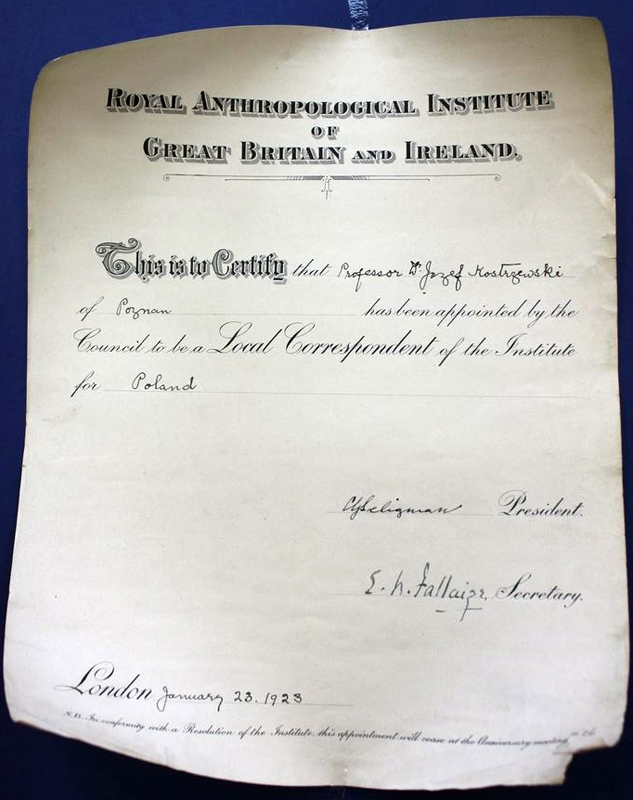 ROYAL ANTHROPOLOGICAL INSTITUTE
OF
GREAT BRITAIN AND IRELAND.
This is to Certify that Professor Dr Jozef Kostrzewski
of Poznan has been appointed by the
Council to be a Local Correspondent of the Institute
for Poland
CGSeligman President.
E. N. Fallaize, Secretary.
London January 23. 1923
N.B. In conformity with a Resolution of the Institute, this appointment will cease at the Anniversary meeting